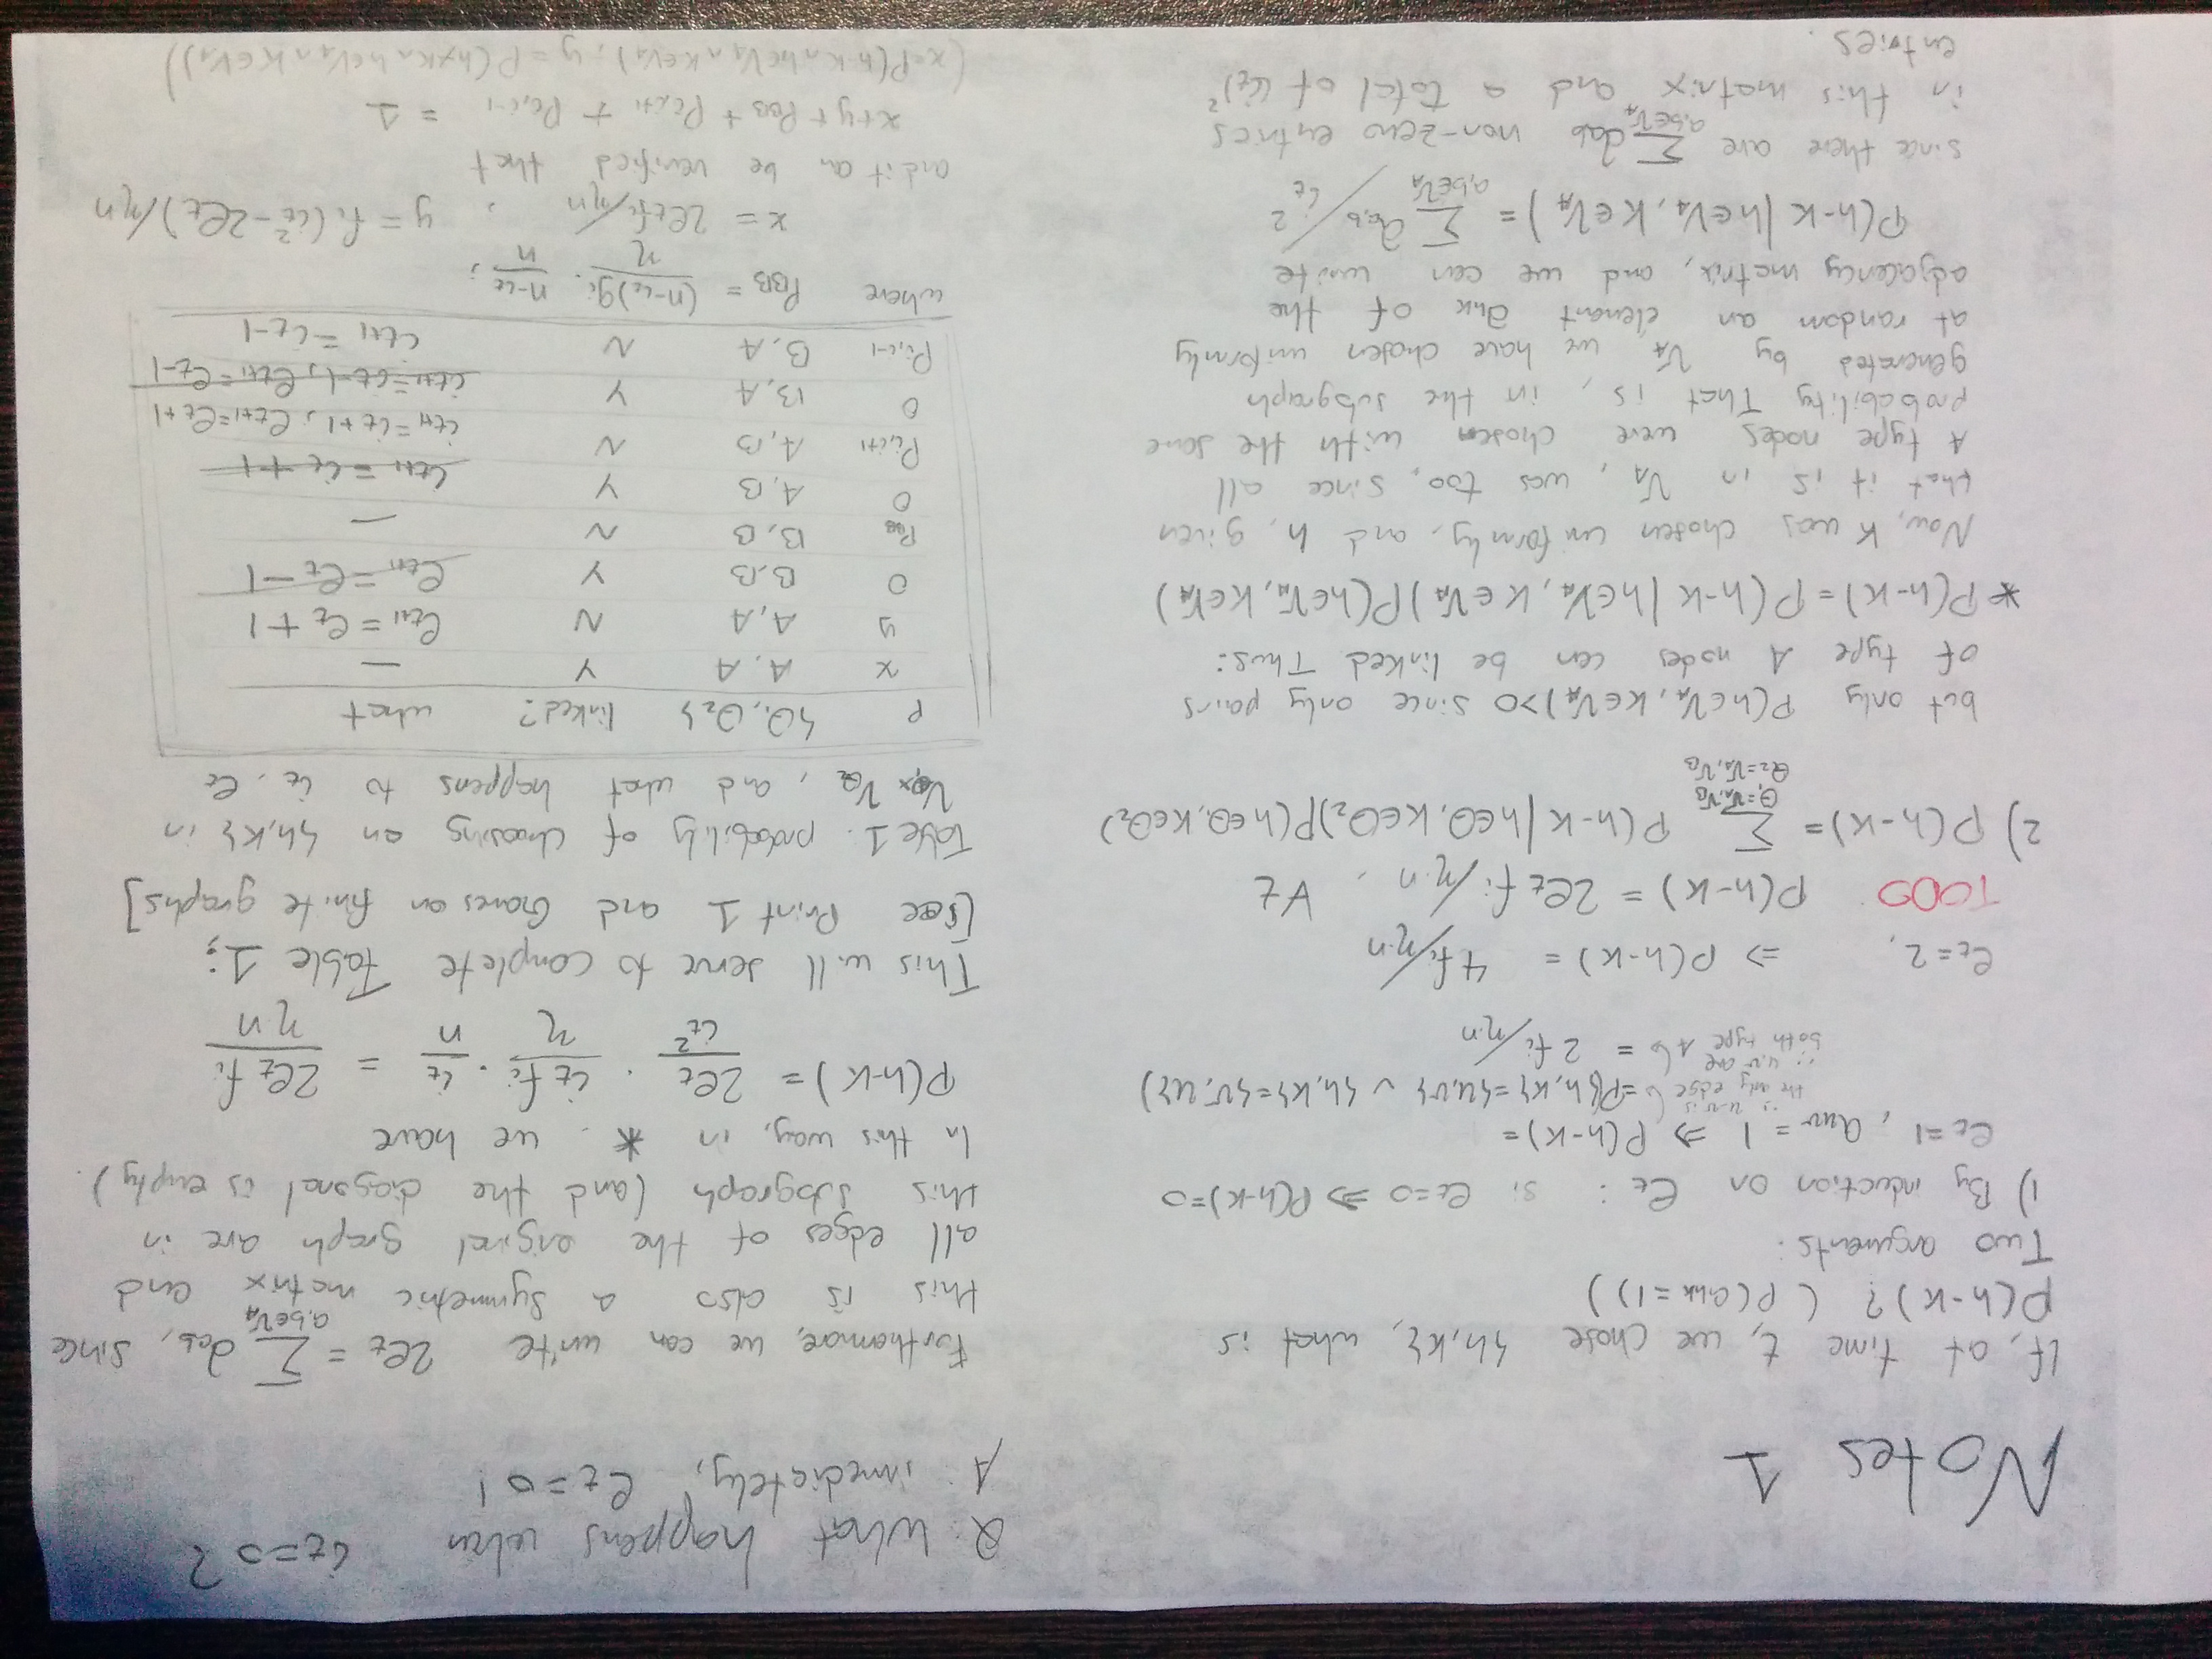 Notes 1
If, at time t, we chose {h,k}, what is
P(h-k)? ( P(a_hk = 1) )
Two arguments:
1) By induction on e_t : si e_t=0 ⇒ P(h-k)=0
e_t=1, a_uv = 1 ⇒ P(h-k)=
∵ u-v is the only edge = P({h,k}={u,v} ∨ {h,k}={v,u})
∵ u,v are both type A = 2f_i/η·n
e_t=2, ⇒ P(h-k) = 4f_i/η·n
TODO P(h-k) = 2e_t f_i/η·n, ∀t
2) P(h-k) = Σ P(h-k | h∈Θ_1, k∈Θ_2) P(h∈Θ_1, k∈Θ_2)
Θ_1=V_A,V_B
Θ_2=V_A,V_B
but only P(h∈V_A, k∈V_A)>0 since only pairs
of type A nodes can be linked. Thus:
* P(h-k) = P(h-k | h∈V_A, k∈V_A) P(h∈V_A, k∈V_A)
Now, k was chosen uniformly, and h, given
that it is in V_A, was too, since all
A type nodes were chosen with the same
probability. That is, in the subgraph
generated by V_A we have chosen uniformly
at random an element a_hk of the
adjacency matrix, and we can write
P(h-k | h∈V_A, k∈V_A) = Σ_{a,b∈V_A} a_{a,b} / i_t²
since there are Σ_{a,b∈V_A} a_ab non-zero entries
in this matrix and a total of (i_t)²
entries.
Q: What happens when i_t=0?
A: imediately, e_t=0!
Forthemore, we can write 2e_t = Σ_{a,b∈V_A} a_ab, since
this is also a symmetric matrix and
all edges of the original graph are in
this subgraph (and the diagonal is empty).
In this way, in *. we have
P(h-k) = 2e_t/i_t² · i_t f_i/η · i_t/n = 2e_t f_i/η n
This will serve to complete Table 1:
[See Print 1 and Games on finite graphs]
Table 1. probability of choosing an {h,k} in
V_Θ1 x V_Θ2, and what happens to i_t, e_t
P {Θ_1,Θ_2} linked? what
x A,A Y —
y A,A N e_t+1 = e_t + 1
0 B,B Y e_t+1 = e_t - 1
P_BB B,B N —
0 A,B Y i_t+1 = i_t + 1
P_i,i+1 A,B N i_t+1 = i_t+1, e_t+1 = e_t+1
0 B,A Y i_t+1 = i_t-1, e_t+1 = e_t-1
P_i,i-1 B,A N i_t+1 = i_t-1
where P_BB = (n-i_t)g_i/η · n-i_t/n;
x = 2e_t f_i/η n , y = f_i(i_t²-2e_t)/η n
and it can be verified that
x+y+P_BB + P_i,i+1 + P_i,i-1 = 1
(x=P(h-k∩h∈V_A∩k∈V_A), y=P(h≁k∩h∈V_A∩k∈V_A))